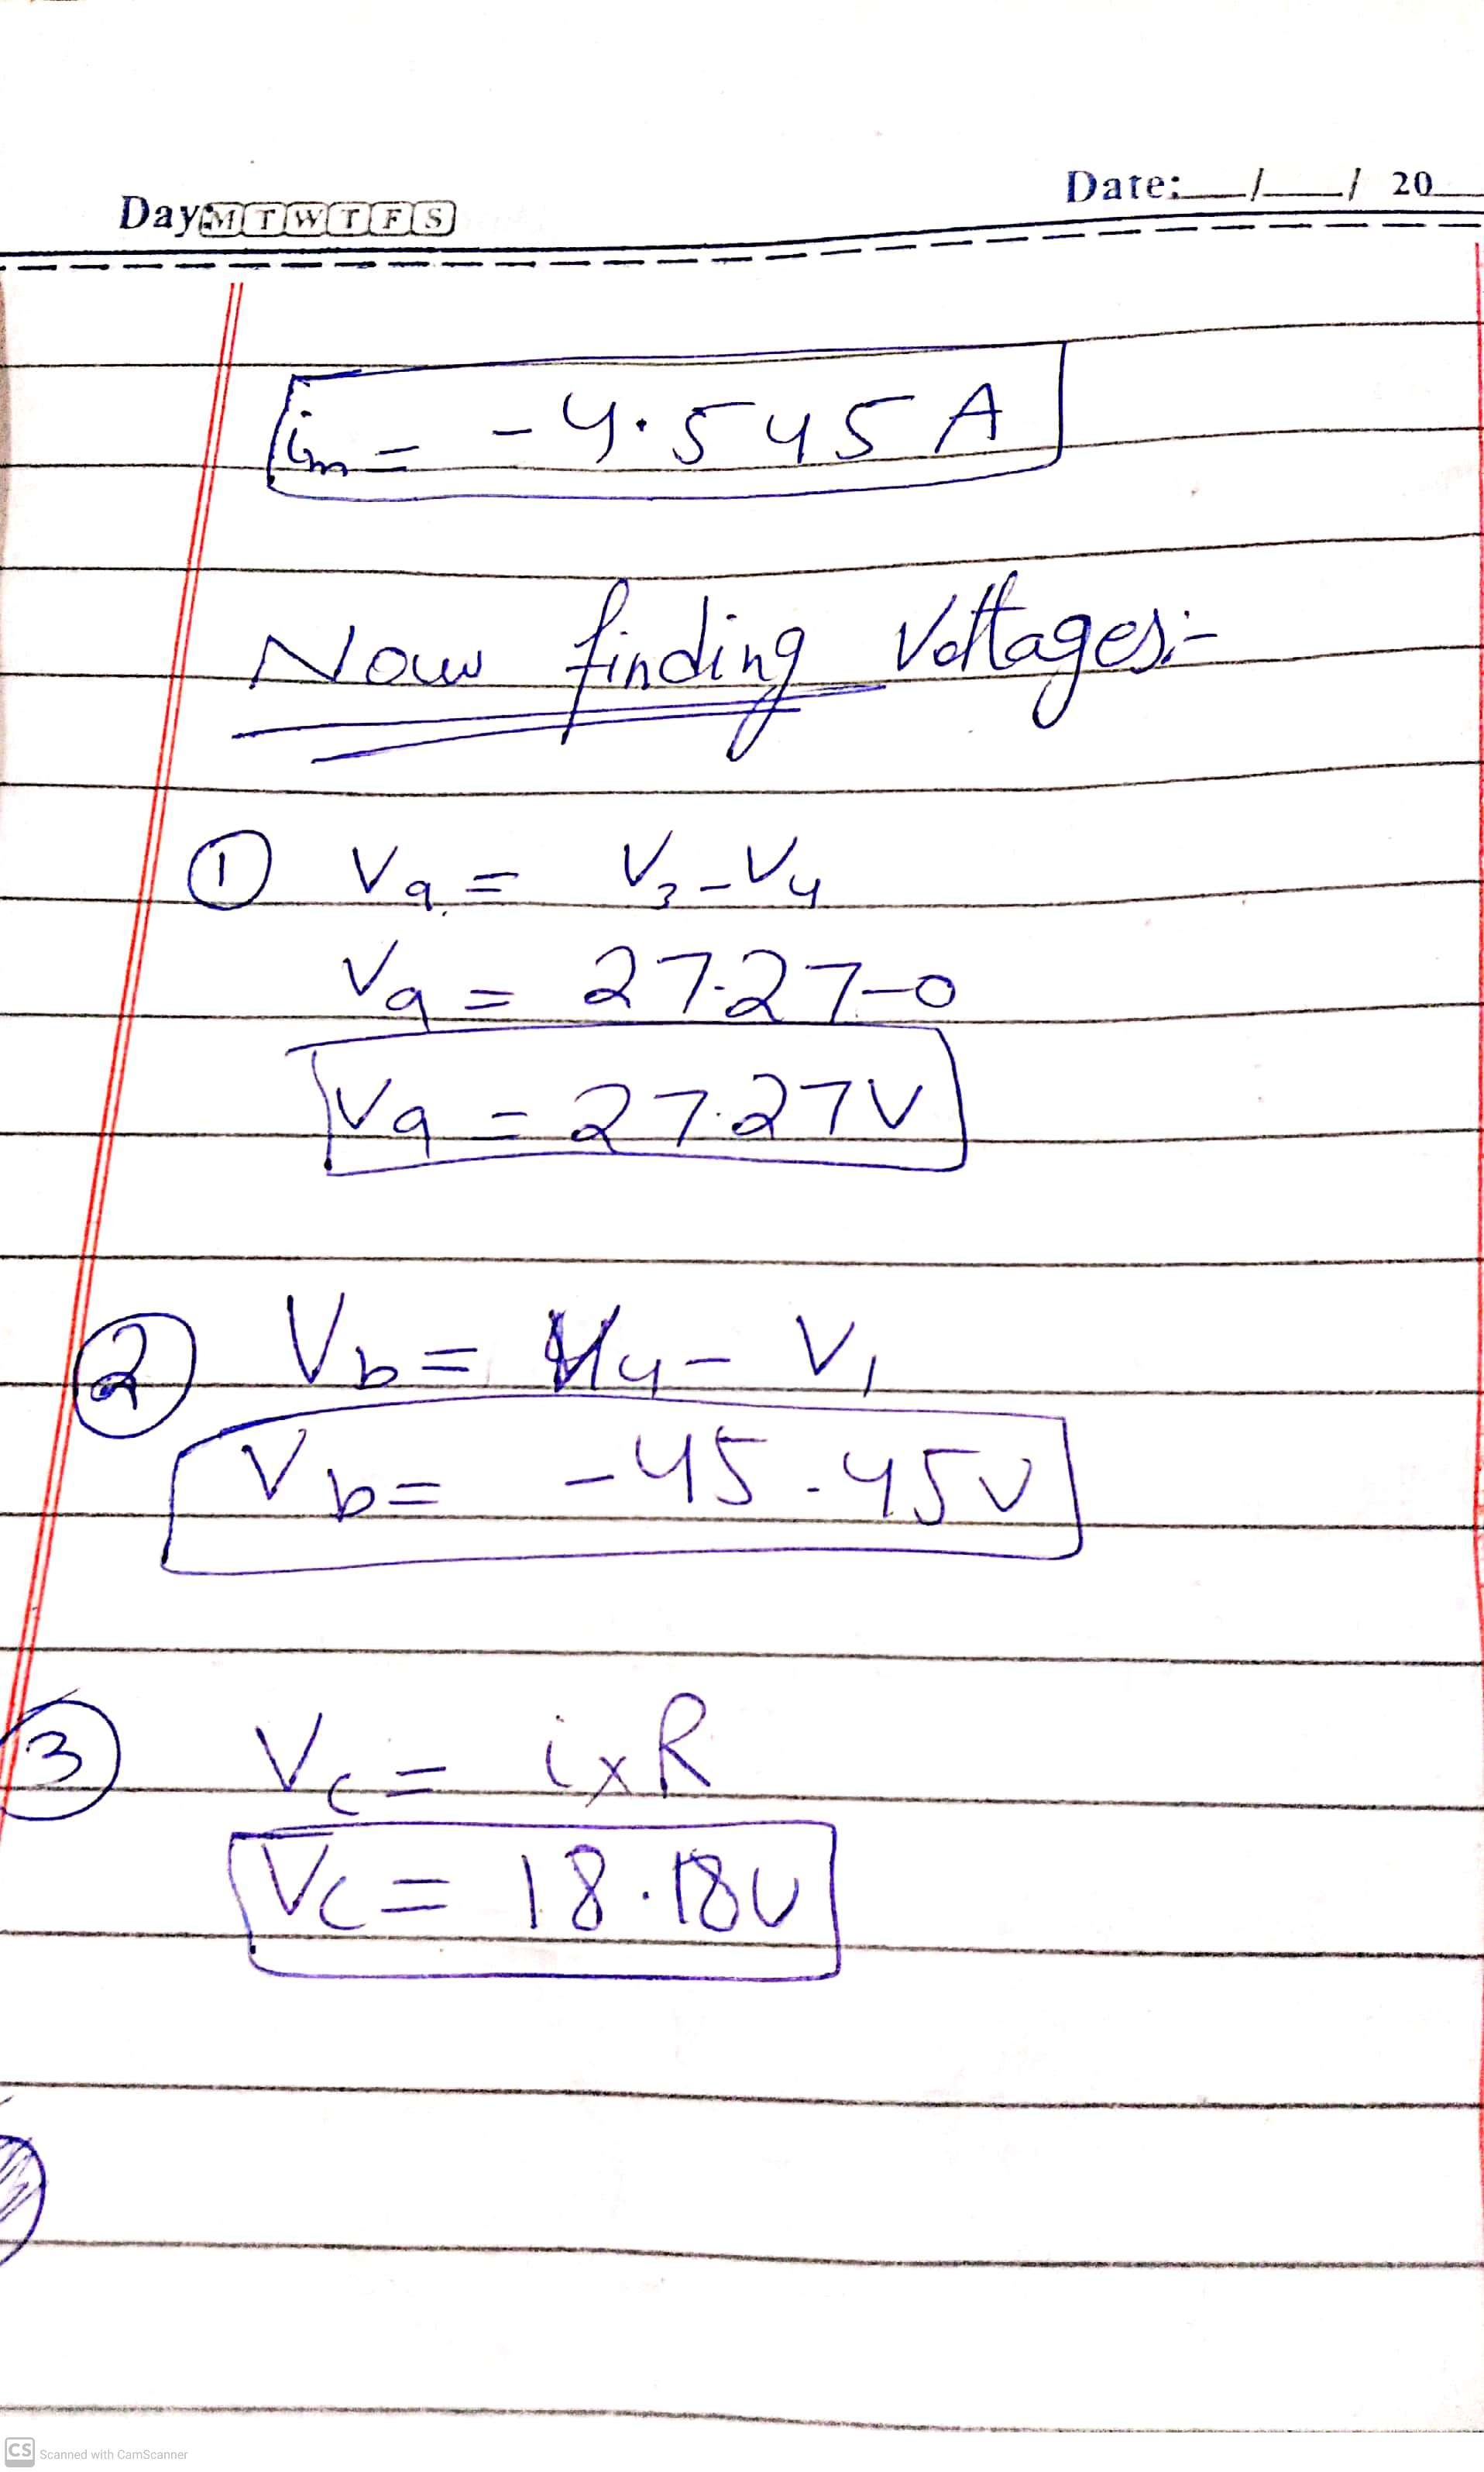 Date: __/__/ 20__
Day: M T W T F S
im = -4.545 A
Now finding Voltages:-
① Va = V3 - V4
Va = 27.27-0
Va = 27.27V
② Vb = V4 - V1
Vb = -45.45V
③ Vc = i x R
Vc = 18.18V
CS Scanned with CamScanner